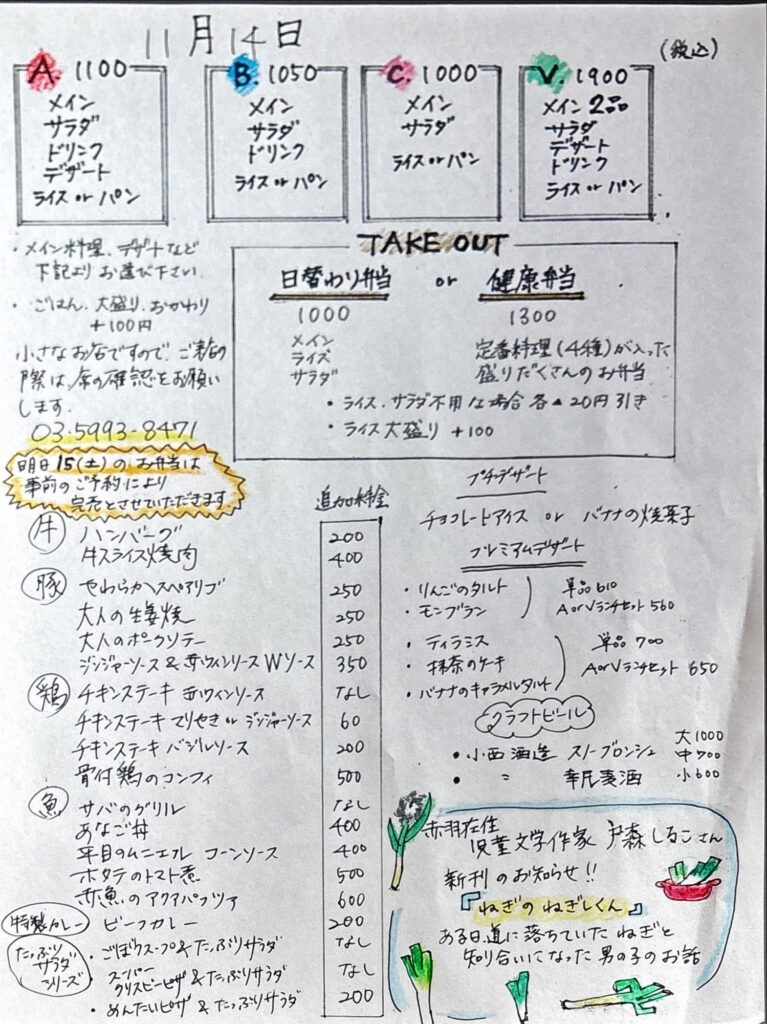 11月14日
(税込)
A. 1100
メイン
サラダ
ドリンク
デザート
ライス or パン
B. 1050
メイン
サラダ
ドリンク
ライス or パン
C. 1000
メイン
サラダ
ライス or パン
V. 1900
メイン 2品
サラダ
デザート
ドリンク
ライス or パン
・メイン料理、デザートなど
下記よりお選び下さい
・ごはん、大盛り、おかわり
+100円
小さなお店ですので、ご来店の
際は、席の確認をお願い
します.
03-5993-8471
明日15(土)のお弁当は
事前のご予約により
完売とさせていただきます
TAKE OUT
日替わり弁当 or 健康弁当
1000
メイン
ライス
サラダ
1300
定番料理(4種)が入った
盛りだくさんのお弁当
・ライス、サラダ不用な場合各▲20円引き
・ライス大盛り +100
追加料金
牛 ハンバーグ 200
牛スライス焼肉 400
豚 やわらかスペアリブ 250
大人の生姜焼 250
大人のポークソテー 250
ジンジャーソース&赤ワインソース Wソース 350
鶏 チキンステーキ 赤ワインソース なし
チキンステーキ てりやき or ジンジャーソース 60
チキンステーキ バジルソース 200
骨付鶏のコンフィ 500
魚 サバのグリル なし
あなご丼 400
平目のムニエル コーンソース 400
ホタテのトマト煮 500
赤魚のアクアパッツァ 600
特製カレー ビーフカレー 200
たっぷりサラダシリーズ
・ごぼうスープ&たっぷりサラダ なし
・スーパークリスピーピザ&たっぷりサラダ なし
・めんたいピザ&たっぷりサラダ 200
プチデザート
チョコレートアイス or バナナの焼菓子
プレミアムデザート
・りんごのタルト
・モンブラン
単品 610
A or Vランチセット 560
・ティラミス
・抹茶のケーキ
・バナナのキャラメルタルト
単品 700
A or Vランチセット 650
クラフトビール
・小西酒造 スノーブロンシュ
・〃 幸民麦酒
大1000
中700
小600
赤羽在住
児童文学作家 戸森しるこさん
新刊のお知らせ!!
『ねぎのねぎしくん』
ある日道に落ちていたねぎと
知り合いになった男の子のお話